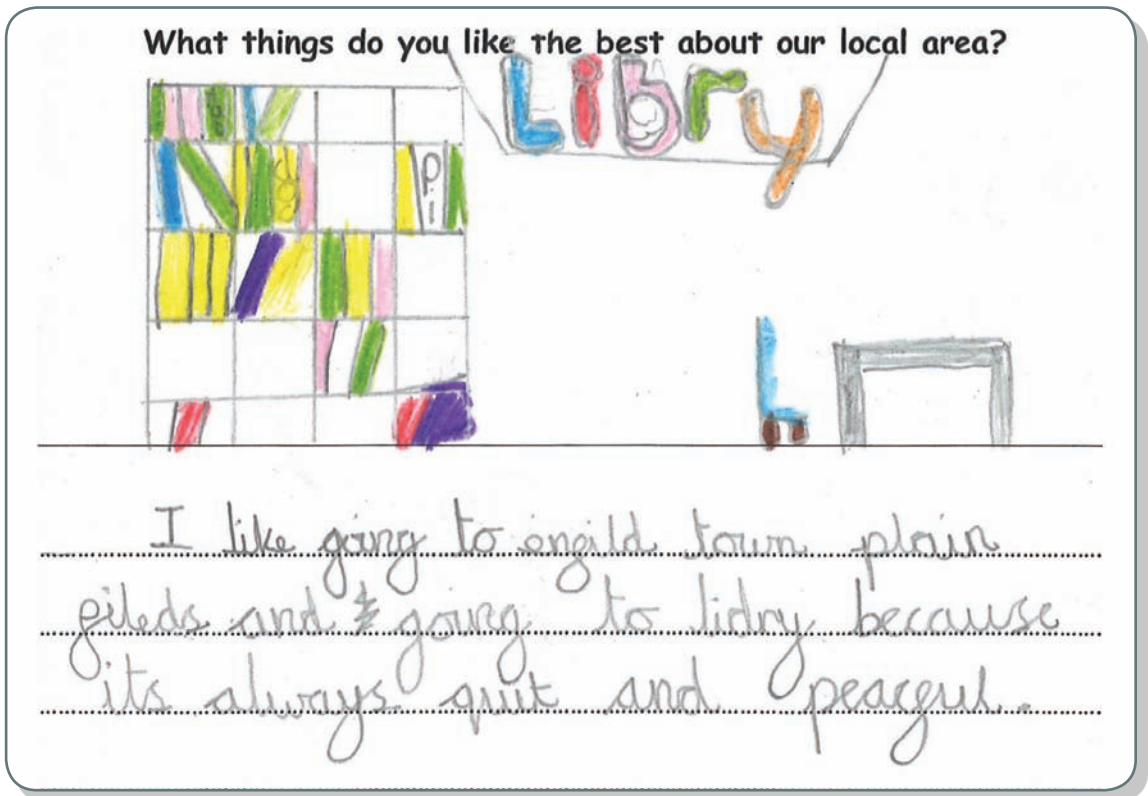 What things do you like the best about our local area?
Libry
I like going to engild town plain
fileds and going to lidry because
its always quit and peaceful.